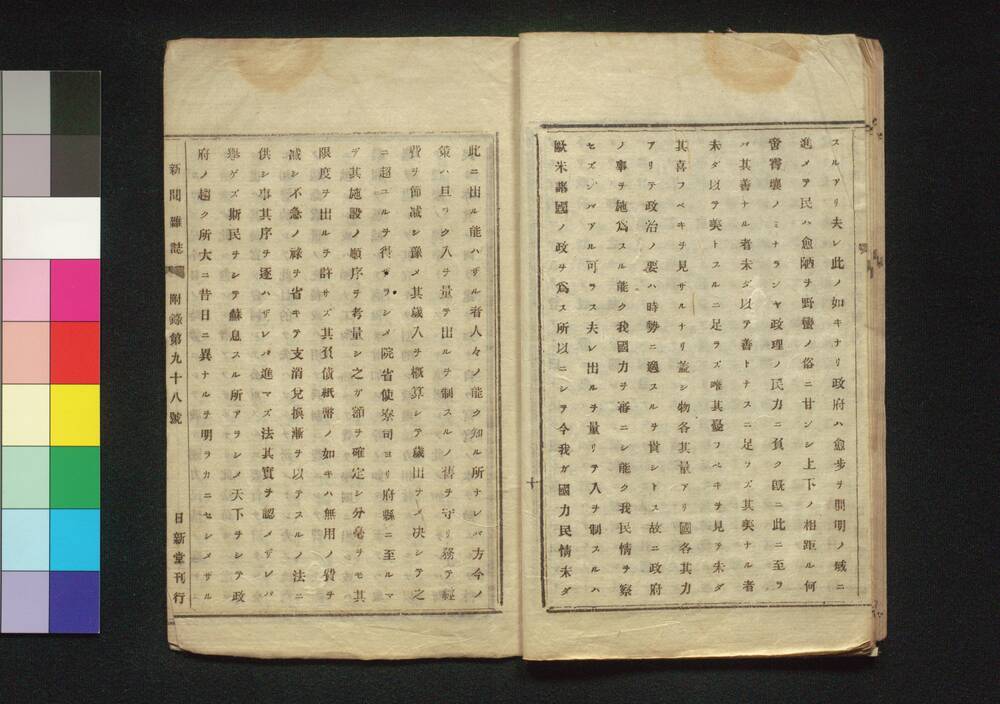 スルアリ夫レ此ノ如キナリ政府ハ愈歩ヲ開明ノ域ニ
進メテ民ハ愈陋ヲ野蠻ノ俗ニ甘ンシ上下ノ相距ル何
啻霄壤ノミナランヤ政理ノ民力ニ負ク既ニ此ニ至ラ
バ其善ナル者未ダ以テ善トナスニ足ラズ其美ナル者
未ダ以テ美トスルニ足ラズ唯其憂フベキヲ見テ未ダ
其喜フベキヲ見サルナリ蓋シ物各其量アリ國各其力
アリテ政治ノ要ハ時勢ニ適スルヲ貴シトス故ニ政府
ノ事ヲ施爲スル能ク我國力ヲ審ニシ能ク我民情ヲ察
セズンバアル可ラス夫レ出ルヲ量リテ入ヲ制スルハ
歐米諸國ノ政ヲ爲ス所以ニシテ今我ガ國力民情未ダ
十
此ニ出ル能ハザル者人々ノ能ク知ル所ナレバ方今ノ
策ハ且ラク入ヲ量テ出ルヲ制スルノ舊ヲ守リ務テ經
費ヲ節减シ豫メ其歳入ヲ概算シテ歳出ヲメ决シテ之
ニ超ユルヲ得ザラシメ院省使寮司ヨリ府縣ニ至ルマ
デ其施設ノ順序ヲ考量シ之ガ額ヲ確定シ分毫ヲモ其
限度ヲ出ルヲ許サズ其負債紙幣ノ如キハ無用ノ費ヲ
减シ不急ノ祿ヲ省キテ支消兌換漸ヲ以テスルノ法ニ
供シ事其序ヲ逐ハザレバ進マズ法其實ヲ認メザレバ
擧ゲズ斯民ヲシテ蘇息スル所アラシメ天下ヲシテ政
府ノ趨ク所大ニ昔日ニ異ナルヲ明ラカニセシメサル
新聞雜誌 附錄第九十八號 日新堂刊行